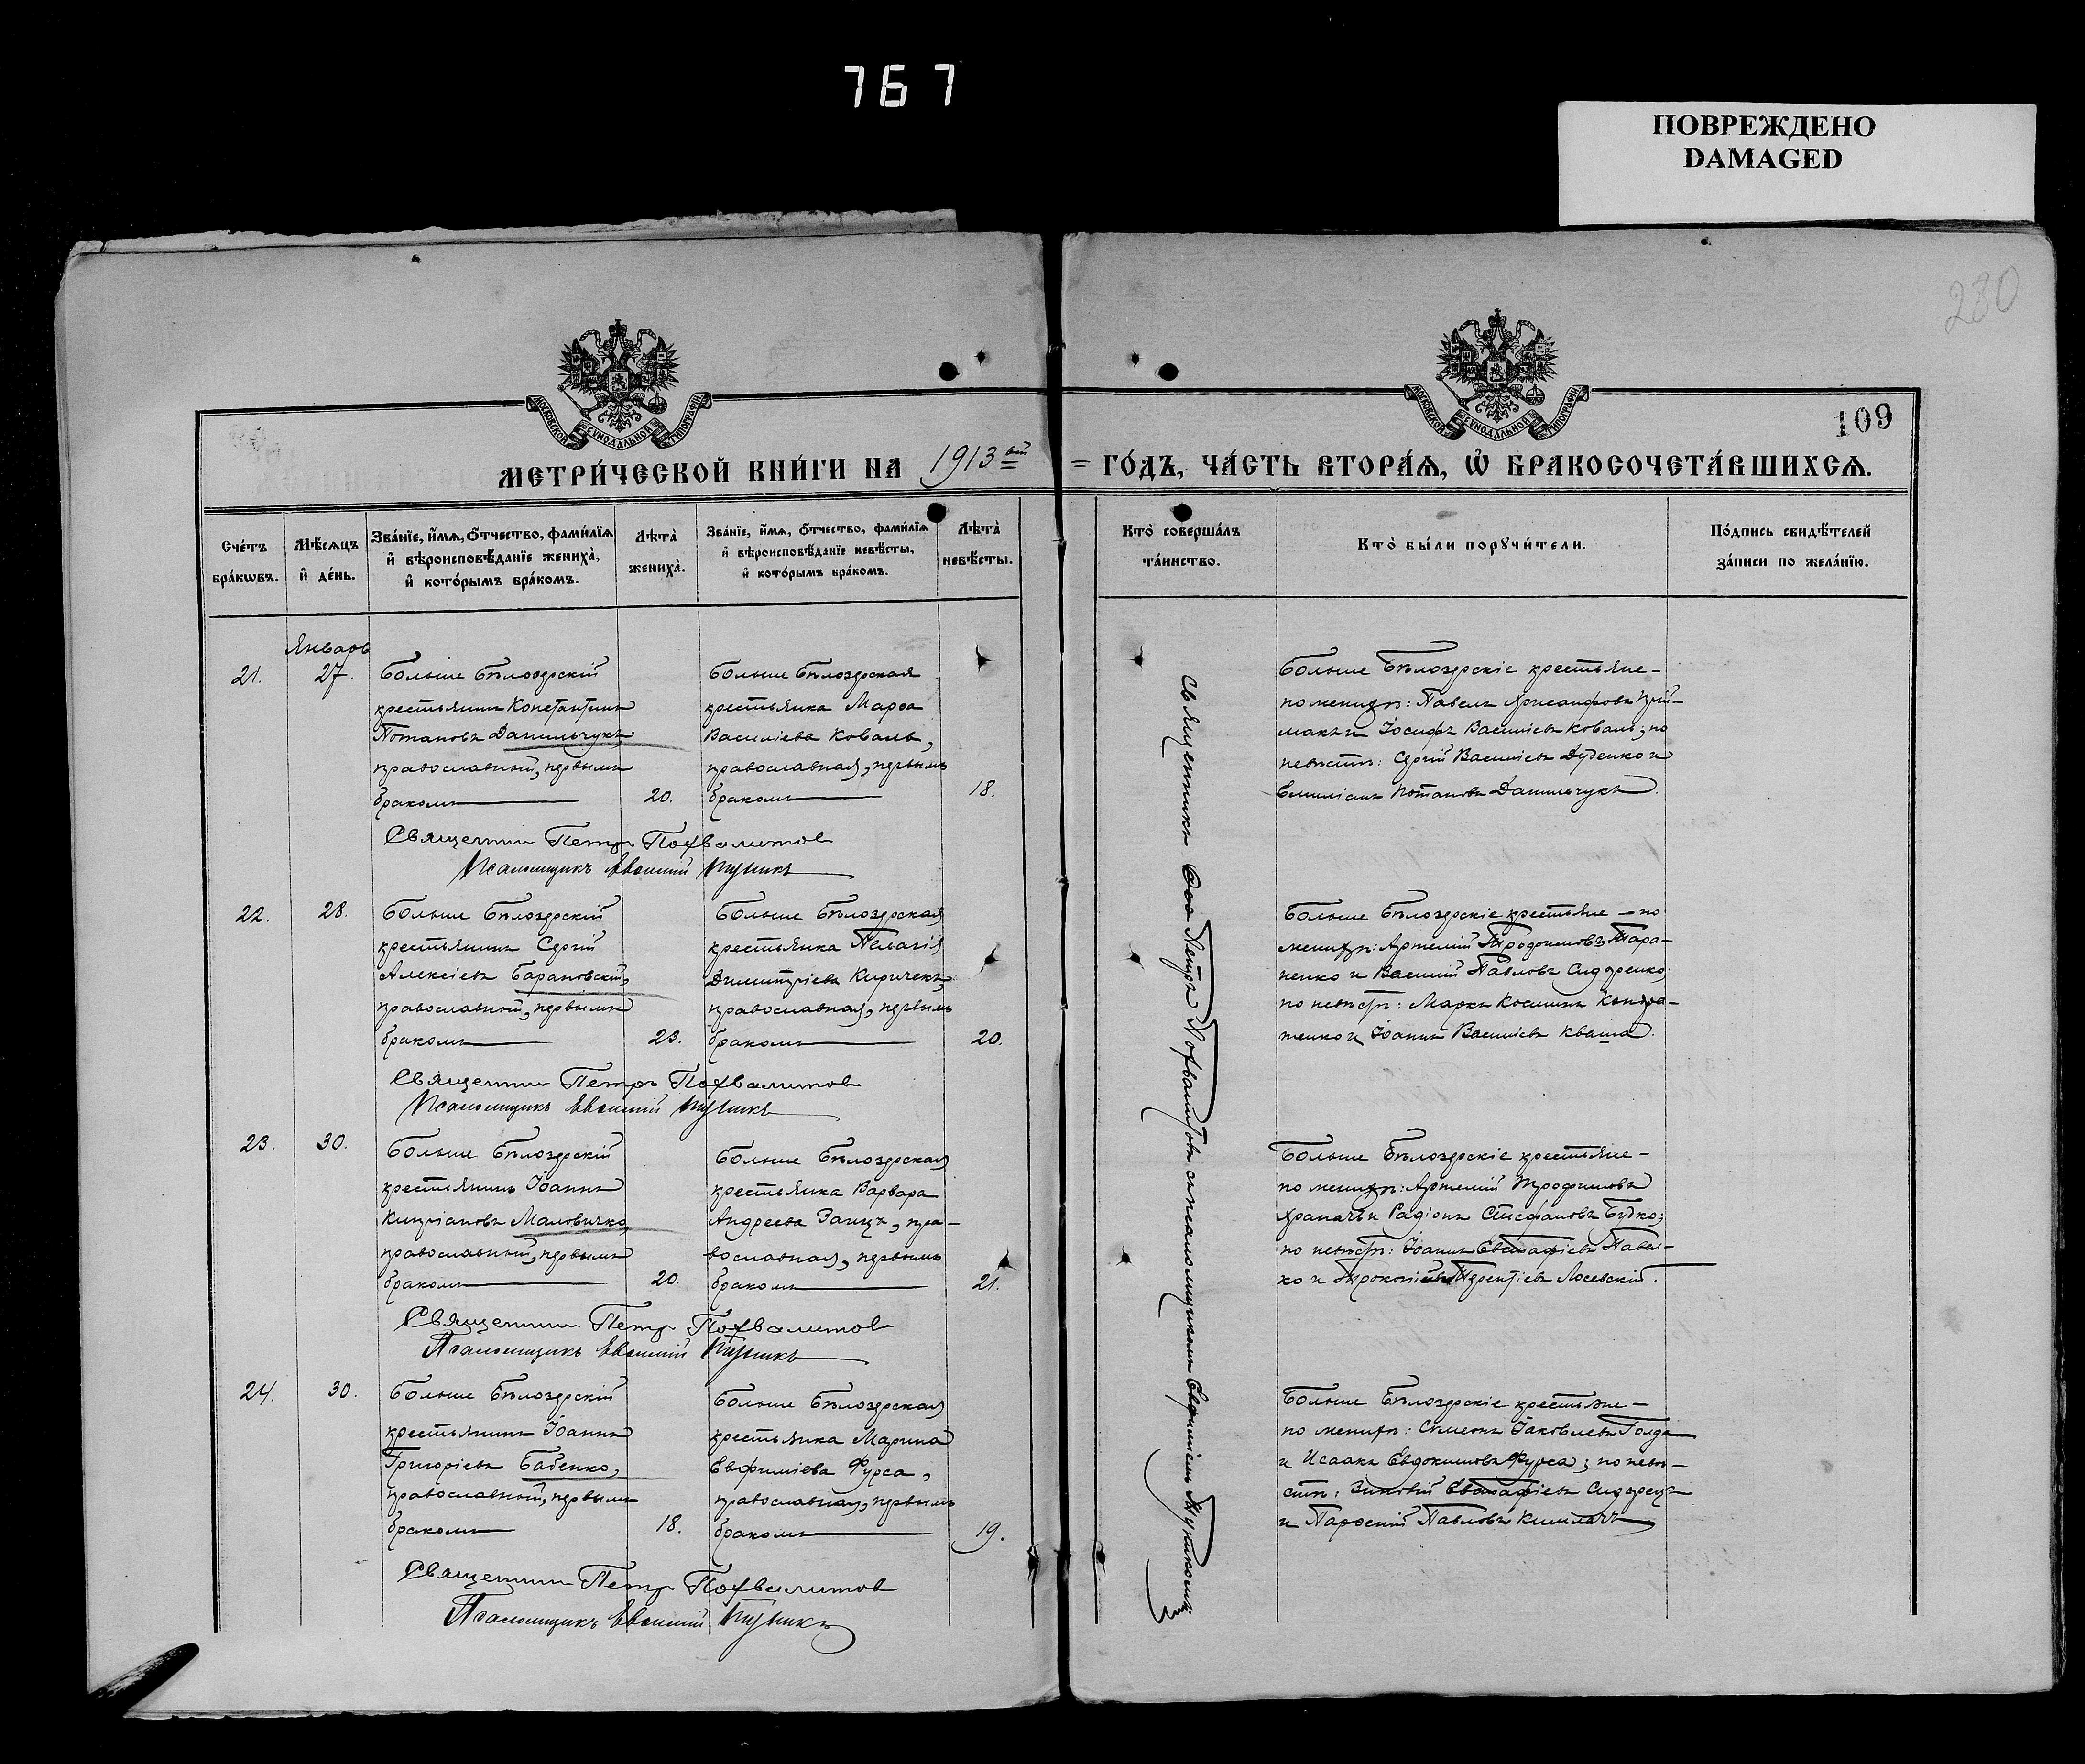 767
ПОВРЕЖДЕНО
DAMAGED
280
109
МОСКОВСКОЙ СѴНОДАЛЬНОЙ ТИПОГРАФІИ
МОСКОВСКОЙ СѴНОДАЛЬНОЙ ТИПОГРАФІИ
МЕТРИ́ЧЕСКОЙ КНИ́ГИ НА 1913 ый = ГО́ДЪ, ЧА́СТЬ ВТОРА́Ѧ, Ѡ БРАКОСОЧЕТА́ВШИХСѦ.
Сче́тъ бра́кѡвъ.
Мѣ́сѧцъ и де́нь.
Зва́нїе, и́мѧ, ѻ́тчество, фами́лїѧ и вѣроисповѣ́данїе жениха̀, и кото́рымъ бра́комъ.
Лѣта̀ жениха̀.
Зва́нїе, и́мѧ, ѻ́тчество, фами́лїѧ и вѣроисповѣ́данїе невѣ́сты, и кото́рымъ бра́комъ.
Лѣта̀ невѣ́сты.
Кто̀ соверша́лъ та́инство.
Кто̀ бы́ли порꙋчи́тели.
По́дпись свидѣ́телей за́писи по жела́нїю.
Январь
21.
27.
Больше Бѣлозерскій
крестьянинъ Константинъ
Потаповъ Данильчукъ,
православный, первымъ
бракомъ
20.
Больше Бѣлозерская
крестьянка Марѳа
Василіева Коваль,
православная, первымъ
бракомъ
18.
Больше Бѣлозерскіе крестьяне –
по женихѣ: Павелъ
и Іосифъ Василіевъ Коваль; по
невѣстѣ: Сергій Василіевъ Дуденко и
Емиліанъ Потаповъ Данильчукъ.
Священник Петръ Похвалитов
Псаломщикъ Евѳимій
22.
28.
Больше Бѣлозерскій
крестьянинъ Сергій
Алексіевъ Барановскій,
православный, первымъ
бракомъ
23.
Больше Бѣлозерская
крестьянка Пелагія
Димитріева Киричекъ,
православная, первымъ
бракомъ
20.
Больше Бѣлозерскіе крестьяне – по
женихѣ: Артемій Трофимовъ Тара-
ненко и Василій Павловъ Сидоренко;
по невѣстѣ: Маркъ Косминъ Кондра-
тенко и Іоаннъ Василіевъ Кваша.
Священник Петръ Похвалитов
Псаломщикъ Евѳимій
23.
30.
Больше Бѣлозерскій
крестьянинъ Іоаннъ
Кипріановъ Маловичко,
православный, первымъ
бракомъ
20.
Больше Бѣлозерская
крестьянка Варвара
Андреева Заяцъ, пра-
вославная, первымъ
бракомъ
21.
Больше Бѣлозерскіе крестьяне –
по женихѣ: Артемій Трофимовъ
Храпачъ и Радіонъ Стефановъ Будко;
по невѣстѣ: Іоаннъ Евстафіевъ Павел-
ко и Прокопій Терентіевъ Лосевскій.
Священник Петръ Похвалитов
Псаломщикъ Евѳимій
24.
30.
Больше Бѣлозерскій
крестьянинъ Іоаннъ
Григоріевъ Бабенко,
православный, первымъ
бракомъ
18.
Больше Бѣлозерская
крестьянка Марина
Евфиміева Фурса,
православная, первымъ
бракомъ
19.
Больше Бѣлозерскіе крестьяне –
по женихѣ: Симеонъ Іаковлевъ Голда
и Исаакъ Евдокимовъ Фурса; по невѣ-
стѣ: Зиновій Евстафіевъ
и Парѳеній Павловъ
Священник Петръ Похвалитов
Псаломщикъ Евѳимій
Священникъ Петръ Похвалитовъ съ псаломщикомъ Евфиміемъ